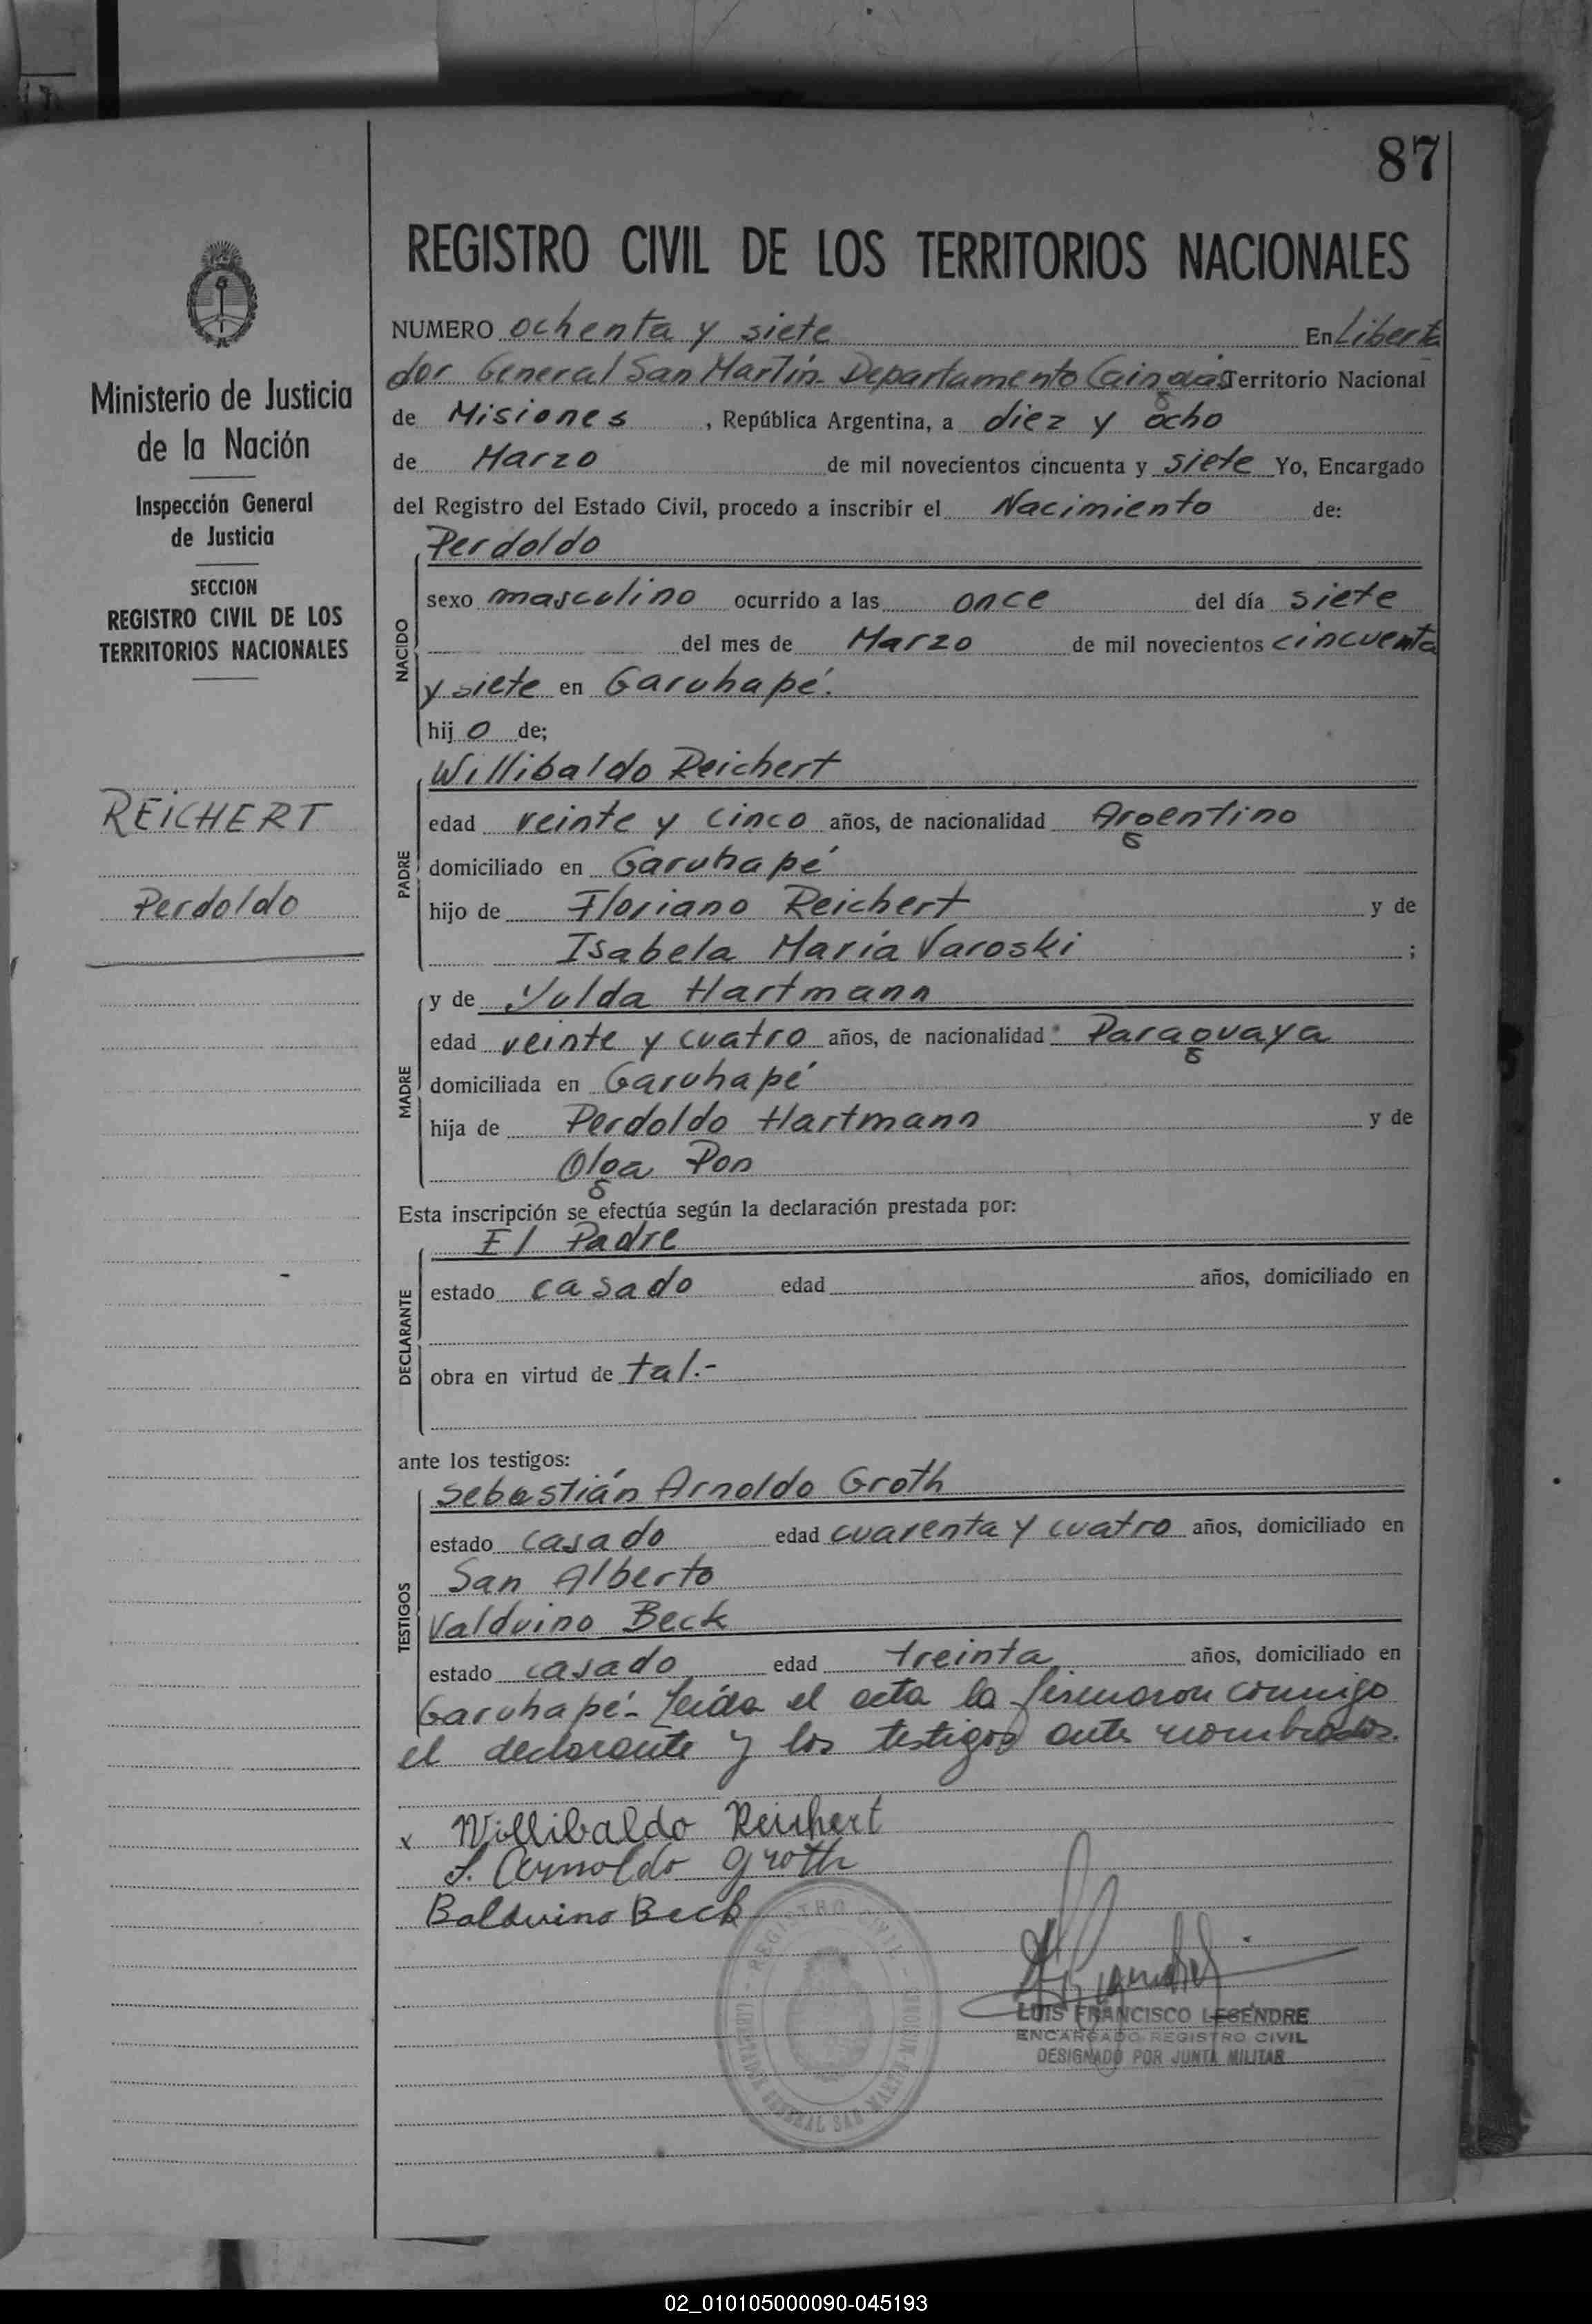 87
REGISTRO CIVIL DE LOS TERRITORIOS NACIONALES
Ministerio de Justicia
de la Nación
Inspección General
de Justicia
SECCION
REGISTRO CIVIL DE LOS
TERRITORIOS NACIONALES
REICHERT
Perdoldo
NUMERO ochenta y siete En Liberta
dor General San Martín. Departamento Cainguás Territorio Nacional
de Misiones, República Argentina, a diez y ocho
de Marzo de mil novecientos cincuenta y siete Yo, Encargado
del Registro del Estado Civil, procedo a inscribir el Nacimiento de:
NACIDO
Perdoldo
sexo masculino ocurrido a las once del día siete
del mes de Marzo de mil novecientos cincuenta
y siete en Garuhapé.
hijo de;
PADRE
Willibaldo Reichert
edad veinte y cinco años, de nacionalidad Argentino
domiciliado en Garuhapé
hijo de Floriano Reichert y de
Isabela María Varoski ;
MADRE
y de Yulda Hartmann
edad veinte y cuatro años, de nacionalidad Paraguaya
domiciliada en Garuhapé
hija de Perdoldo Hartmann y de
Olga Pon
Esta inscripción se efectúa según la declaración prestada por:
DECLARANTE
El Padre
estado casado edad años, domiciliado en
obra en virtud de tal.-
ante los testigos:
TESTIGOS
Sebastián Arnoldo Groth
estado casado edad cuarenta y cuatro años, domiciliado en
San Alberto
Valduino Beck
estado casado edad treinta años, domiciliado en
Garuhapé.- Leída el acta la firmaron conmigo
el declarante y los testigos antes nombrados.
x Willibaldo Reichert
S. Arnoldo Groth
Balduino Beck
REGISTRO CIVIL
LIBERTADOR GENERAL SAN MARTIN
LUIS FRANCISCO LEGENDRE
ENCARGADO REGISTRO CIVIL
DESIGNADO POR JUNTA MILITAR
02_010105000090-045193